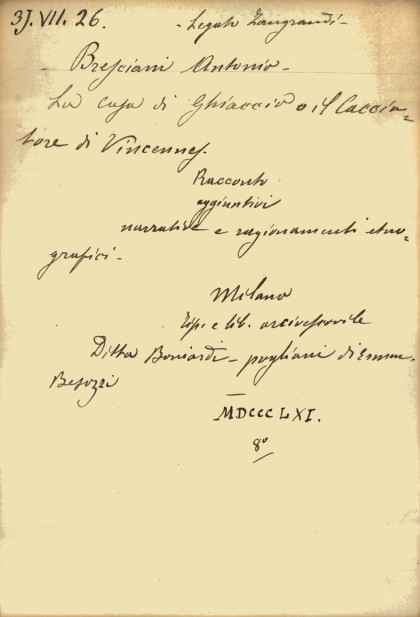 3J. VII. 26. - Legato Zangrandi -
Bresciani Antonio -
La Casa di Ghiaccio o il Caccia=
tore di Vincennes.
Racconto
aggiuntivi
narrative e ragionamenti etno=
grafici -
Milano
Tip. e lib. arcivescovile
Ditta Boniardi - pogliani di Erman.
Besozzi
MDCCCLXI.
8º